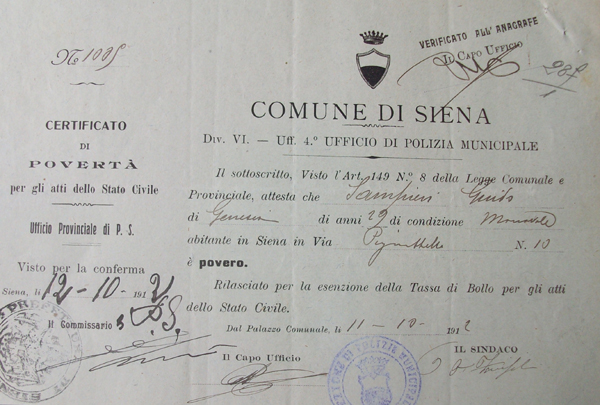 No 1005
CERTIFICATO
DI
POVERTÀ
per gli atti dello Stato Civile
Ufficio Provinciale di P. S.
Visto per la conferma
Siena, li 12-10-1912
Il Commissario
VERIFICATO ALL'ANAGRAFE
IL CAPO UFFICIO
COMUNE DI SIENA
DIV. VI. — UFF. 4.° UFFICIO DI POLIZIA MUNICIPALE
Il sottoscritto, Visto l'Art. 149 N.° 8 della Legge Comunale e
Provinciale, attesta che Sampieri Guido
di di anni 29 di condizione
abitante in Siena in Via N. 10
è povero.
Rilasciato per la esenzione della Tassa di Bollo per gli atti
dello Stato Civile.
Dal Palazzo Comunale, li 11-10-1912
Il Capo Ufficio
IL SINDACO